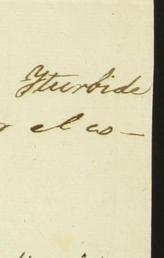 Yturbide
r el co-